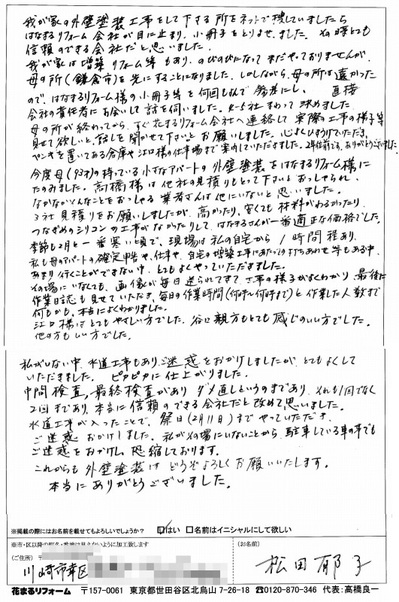 我が家の外壁塗装工事をして下さる所をネットで探していましたら
はなまるリフォーム会社が目に止まり、小冊子をとりよせました。その時とても
信頼のできる会社だと思いました。
我が家は増築リフォーム等もあり、のびのびになってまだやっておりませんが、
母の所(鎌倉市)を先にすることになりました。しかしながら、母の所は遠かった
ので、はなまるリフォーム様の小冊子等を何回もよんで参考にし、直接
会社の責任者にお会いして話を伺いました。4~5社まわって決めました
母の所が終わってから、すぐ花まるリフォーム会社へ連絡して実際の工事の様子等
見せて欲しいと、話しを聞かせて下さいとお願いしました。心よくひきうけていただき、
ペンキを置いてある倉庫や江口様の仕事場まで案内していただきました。
今度母(83才)の持っている小さなアパートの外壁塗装をはなまるリフォーム様に
たのみました。高橋様は他社の見積りもとって下さいとおっしゃられ、
なかなかそんなことをおっしゃる業者さんは他にいないと思いました。
3社見積りをお願いしましたが、高かったり、安くても材料がわるかったり、
つなぎめのシリコンの工事がなかったりして、はなまるさんが一番適正な価格でした。
季節も2月と一番寒い頃で、現場は私の自宅から1時間程あり、
私も母のアパートの確定申告や、仕事や、自宅の増築工事にあたってのうちあわせ等もある中、
あまり行くことができない中、とてもよくやっていただきました。
その場にいなくても、画像が毎日送られてきて工事の様子がよくわかり、最後に
作業日誌も見せていただき、毎日の作業時間(何時~何時まで)と作業した人数まで
何もかも、本当によくわかりました。
江口様はとてもやさしい方でした。谷口親方もとても感じのいい方でした。
他の方もいい方でした。
私がいない中、水道工事もあり、ご迷惑をおかけしましたが、とてもよくして
いただきました。ピカピカに仕上がりました。
中間検査、最終検査があり、ダメ直しというのまであり、それも1回でなく
2回まであり、本当に信頼のできる会社だと改めて思いました。
水道工事が入ったことで、祭日(2月11日)までやっていただき、
ご迷惑おかけしました。私がその場にいないことから、駐車している車の事でも
ご迷惑をおかけし、恐縮しております。
これからも外壁塗装はどうぞよろしくお願いいたします。
本当にありがとうございました。
※掲載の際にはお名前を載せてもよろしいでしょうか? ☑はい □名前はイニシャルにして欲しい
(ご住所)
(お名前)
川崎市幸区
松田郁子
花まるリフォーム 〒157-0061 東京都世田谷区北烏山7-26-18 0120-870-346 代表:高橋良一